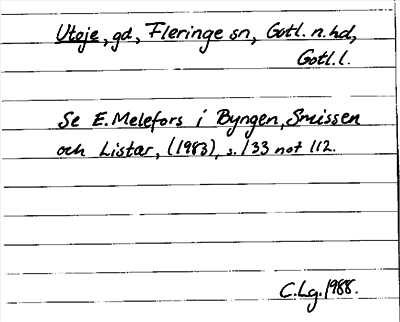 Utoje, gd, Fleringe sn, Gotl. n. hd,
Gotl. l.
Se E. Melefors i Byngen, Smissen
och Listar, (1983), s. 133 not 112.
C.Lg. 1988.